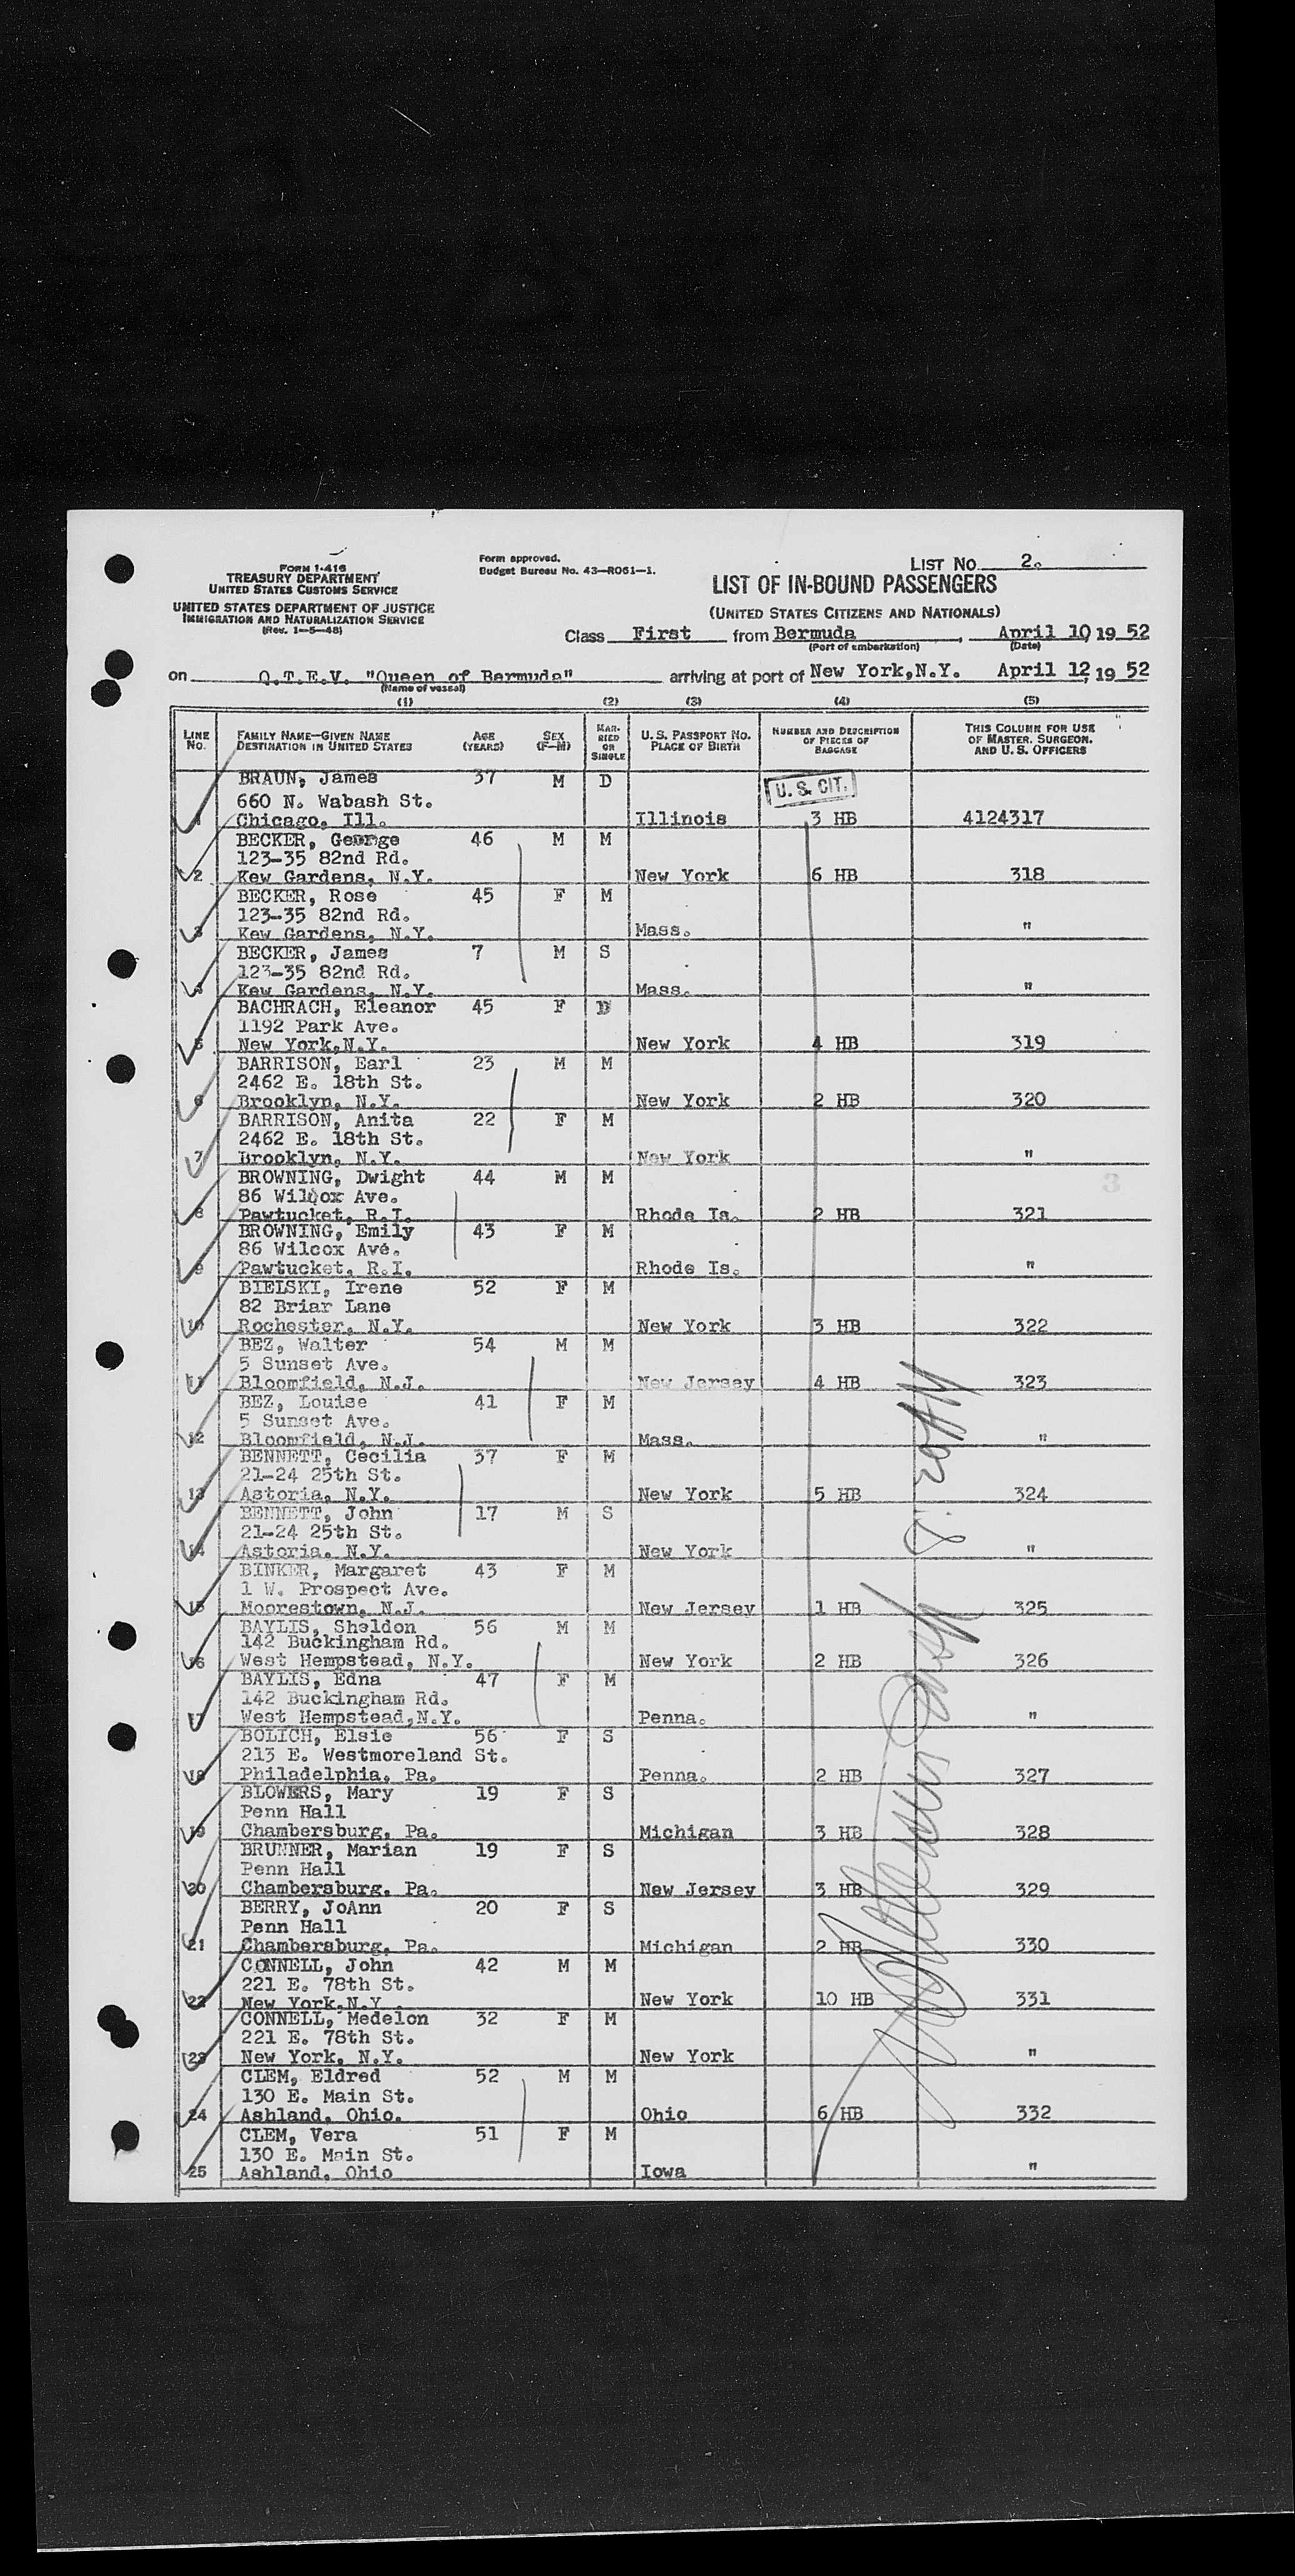 FORM I-416
TREASURY DEPARTMENT
UNITED STATES CUSTOMS SERVICE
UNITED STATES DEPARTMENT OF JUSTICE
IMMIGRATION AND NATURALIZATION SERVICE
(Rev. 1-5-48)
Form approved.
Budget Bureau No. 43-R061-1.
LIST NO. 2.
LIST OF IN-BOUND PASSENGERS
(UNITED STATES CITIZENS AND NATIONALS)
Class First from Bermuda, April 10 19 52
(Port of embarkation) (Date)
on Q.T.E.V. "Queen of Bermuda" arriving at port of New York, N.Y. April 12, 19 52
(Name of vessel)
(1) (2) (3) (4) (5)
LINE NO. FAMILY NAME—GIVEN NAME DESTINATION IN UNITED STATES AGE (YEARS) SEX (F—M) MARRIED OR SINGLE U. S. PASSPORT NO. PLACE OF BIRTH NUMBER AND DESCRIPTION OF PIECES OF BAGGAGE THIS COLUMN FOR USE OF MASTER, SURGEON, AND U. S. OFFICERS
BRAUN, James 37 M D U. S. CIT.
660 N. Wabash St.
1 Chicago, Ill. Illinois 3 HB 4124317
BECKER, George 46 M M
123-35 82nd Rd.
2 Kew Gardens, N.Y. New York 6 HB 318
BECKER, Rose 45 F M
123-35 82nd Rd.
3 Kew Gardens, N.Y. Mass. "
BECKER, James 7 M S
123-35 82nd Rd.
4 Kew Gardens, N.Y. Mass. "
BACHRACH, Eleanor 45 F D
1192 Park Ave.
5 New York, N.Y. New York 4 HB 319
BARRISON, Earl 23 M M
2462 E. 18th St.
6 Brooklyn, N.Y. New York 2 HB 320
BARRISON, Anita 22 F M
2462 E. 18th St.
7 Brooklyn, N.Y. New York "
BROWNING, Dwight 44 M M
86 Wilcox Ave.
8 Pawtucket, R.I. Rhode Is. 2 HB 321
BROWNING, Emily 43 F M
86 Wilcox Ave.
9 Pawtucket, R.I. Rhode Is. "
BIELSKI, Irene 52 F M
82 Briar Lane
10 Rochester, N.Y. New York 3 HB 322
BEZ, Walter 54 M M
5 Sunset Ave.
11 Bloomfield, N.J. New Jersey 4 HB 323
BEZ, Louise 41 F M
5 Sunset Ave.
12 Bloomfield, N.J. Mass. "
BENNETT, Cecilia 37 F M
21-24 25th St.
13 Astoria, N.Y. New York 5 HB 324
BENNETT, John 17 M S
21-24 25th St.
14 Astoria, N.Y. New York "
BINKER, Margaret 43 F M
1 W. Prospect Ave.
15 Moorestown, N.J. New Jersey 1 HB 325
BAYLIS, Sheldon 56 M M
142 Buckingham Rd.
16 West Hempstead, N.Y. New York 2 HB 326
BAYLIS, Edna 47 F M
142 Buckingham Rd.
17 West Hempstead, N.Y. Penna. "
BOLICH, Elsie 56 F S
213 E. Westmoreland St.
18 Philadelphia, Pa. Penna. 2 HB 327
BLOWERS, Mary 19 F S
Penn Hall
19 Chambersburg, Pa. Michigan 3 HB 328
BRUNNER, Marian 19 F S
Penn Hall
20 Chambersburg, Pa. New Jersey 3 HB 329
BERRY, JoAnn 20 F S
Penn Hall
21 Chambersburg, Pa. Michigan 2 HB 330
CONNELL, John 42 M M
221 E. 78th St.
22 New York, N.Y. New York 10 HB 331
CONNELL, Medelon 32 F M
221 E. 78th St.
23 New York, N.Y. New York "
CLEM, Eldred 52 M M
130 E. Main St.
24 Ashland, Ohio. Ohio 6 HB 332
CLEM, Vera 51 F M
130 E. Main St.
25 Ashland, Ohio Iowa "